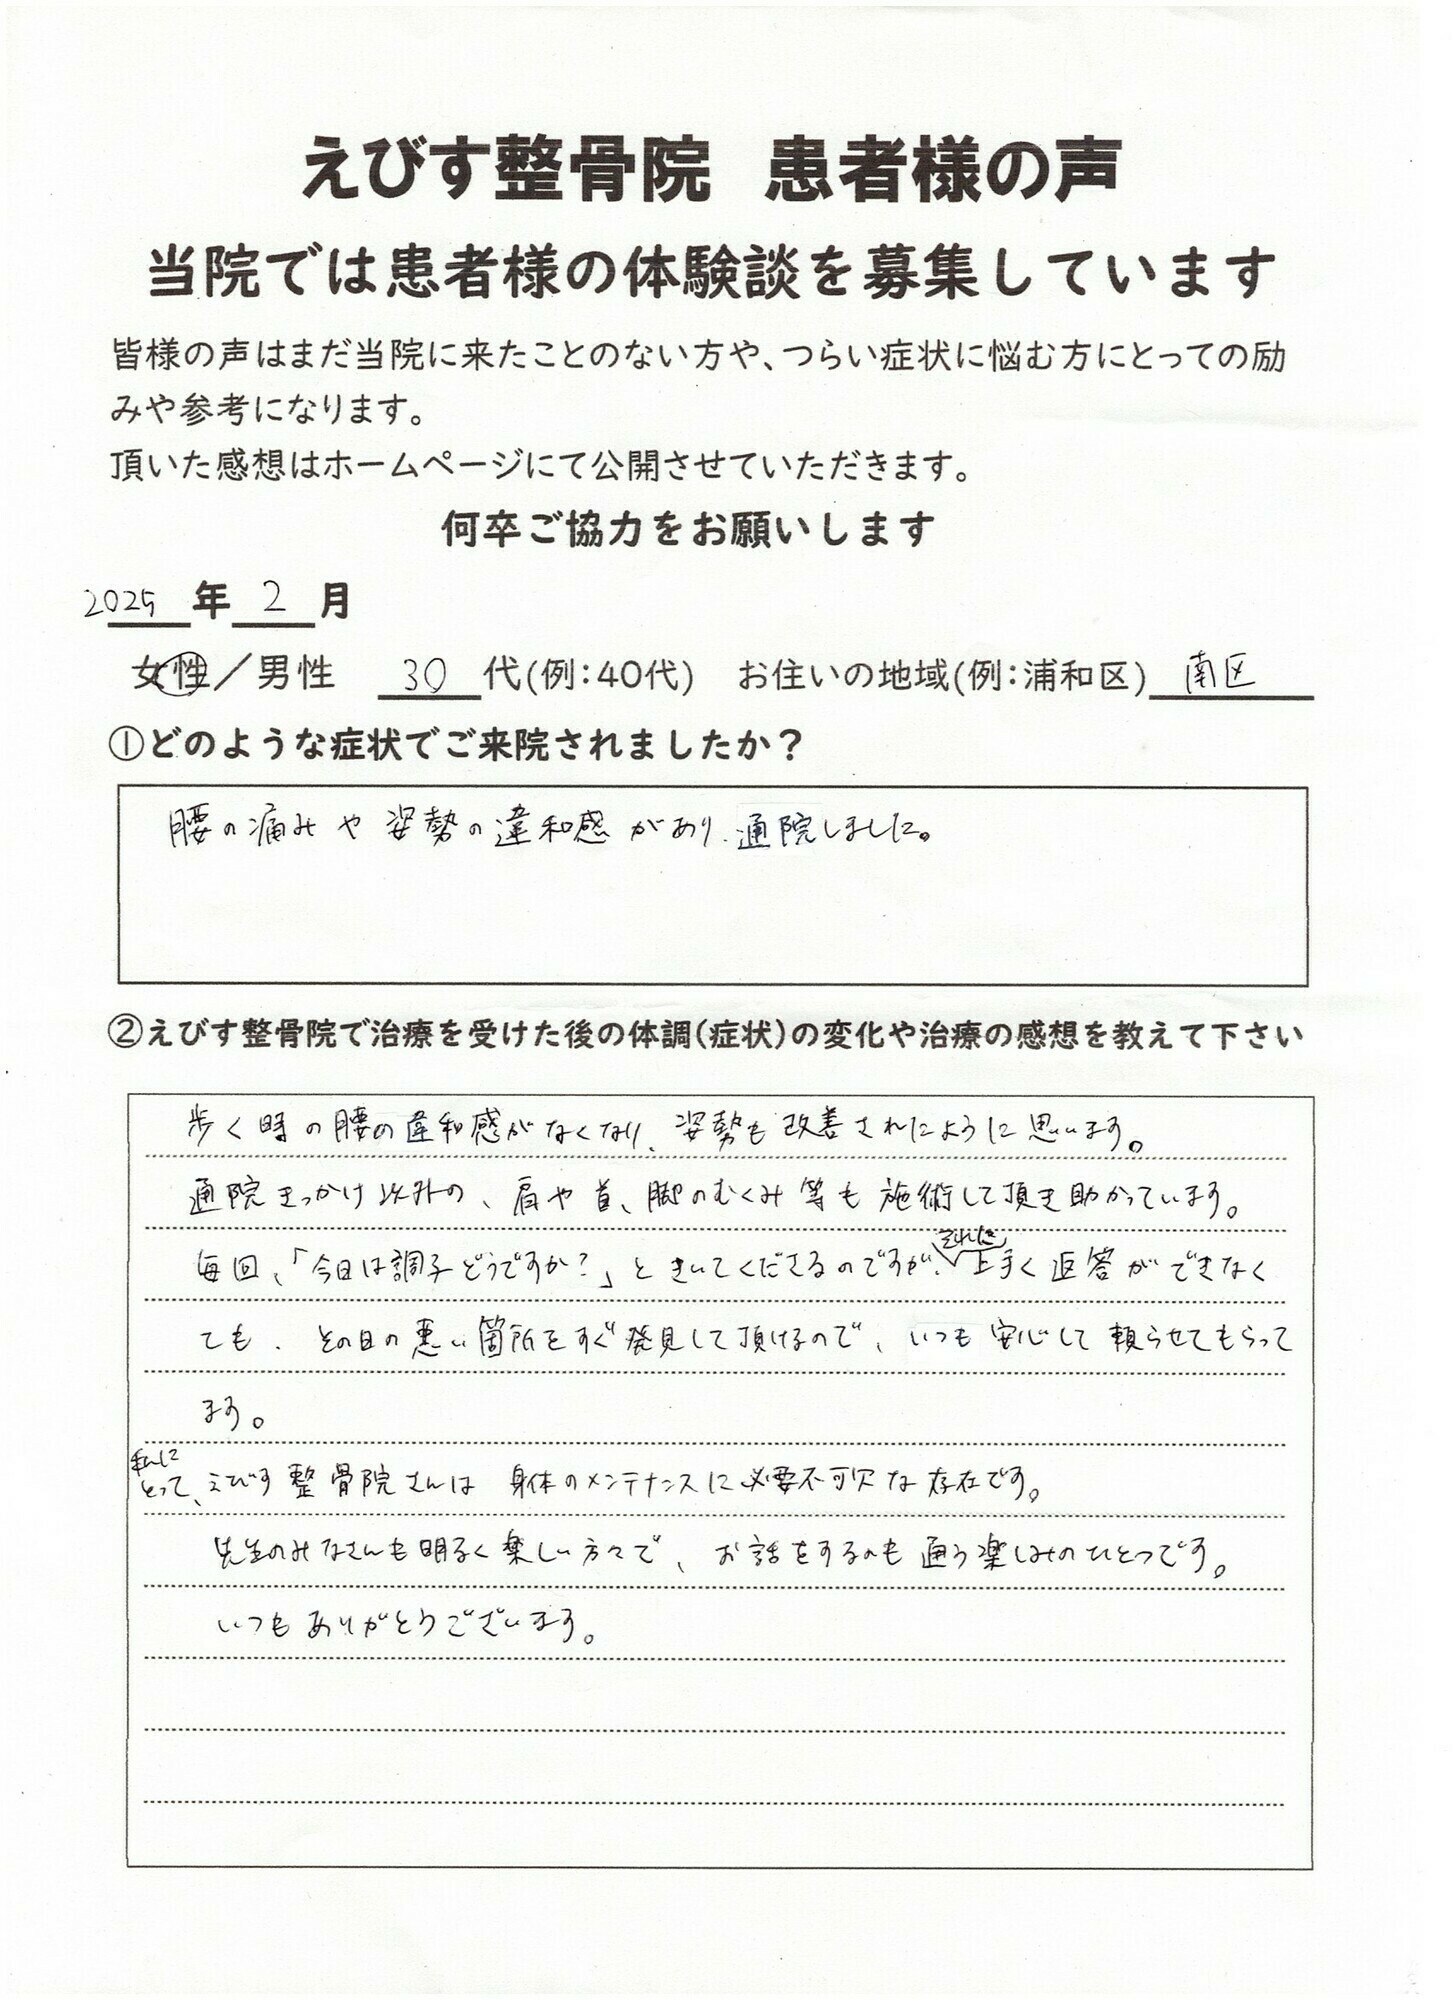 えびす整骨院　患者様の声
当院では患者様の体験談を募集しています
皆様の声はまだ当院に来たことのない方や、つらい症状に悩む方にとっての励
みや参考になります。
頂いた感想はホームページにて公開させていただきます。
何卒ご協力をお願いします
2025年 2 月
女性／男性　30 代(例：40代)　お住いの地域(例：浦和区) 南区
①どのような症状でご来院されましたか？
腰の痛みや姿勢の違和感があり、通院しました。
②えびす整骨院で治療を受けた後の体調(症状)の変化や治療の感想を教えて下さい
歩く時の腰の違和感がなくなり、姿勢も改善されたように思います。
通院きっかけ以外の、肩や首、脚のむくみ等も施術して頂き助かっています。
毎回、「今日は調子どうですか？」ときいてくださるのですが、それに上手く返答ができなく
ても、その日の悪い箇所をすぐ発見して頂けるので、いつも安心して頼らせてもらって
ます。
私に
とって、えびす整骨院さんは身体のメンテナンスに必要不可欠な存在です。
先生のみなさんも明るく楽しい方々で、お話をするのも通う楽しみのひとつです。
いつもありがとうございます。